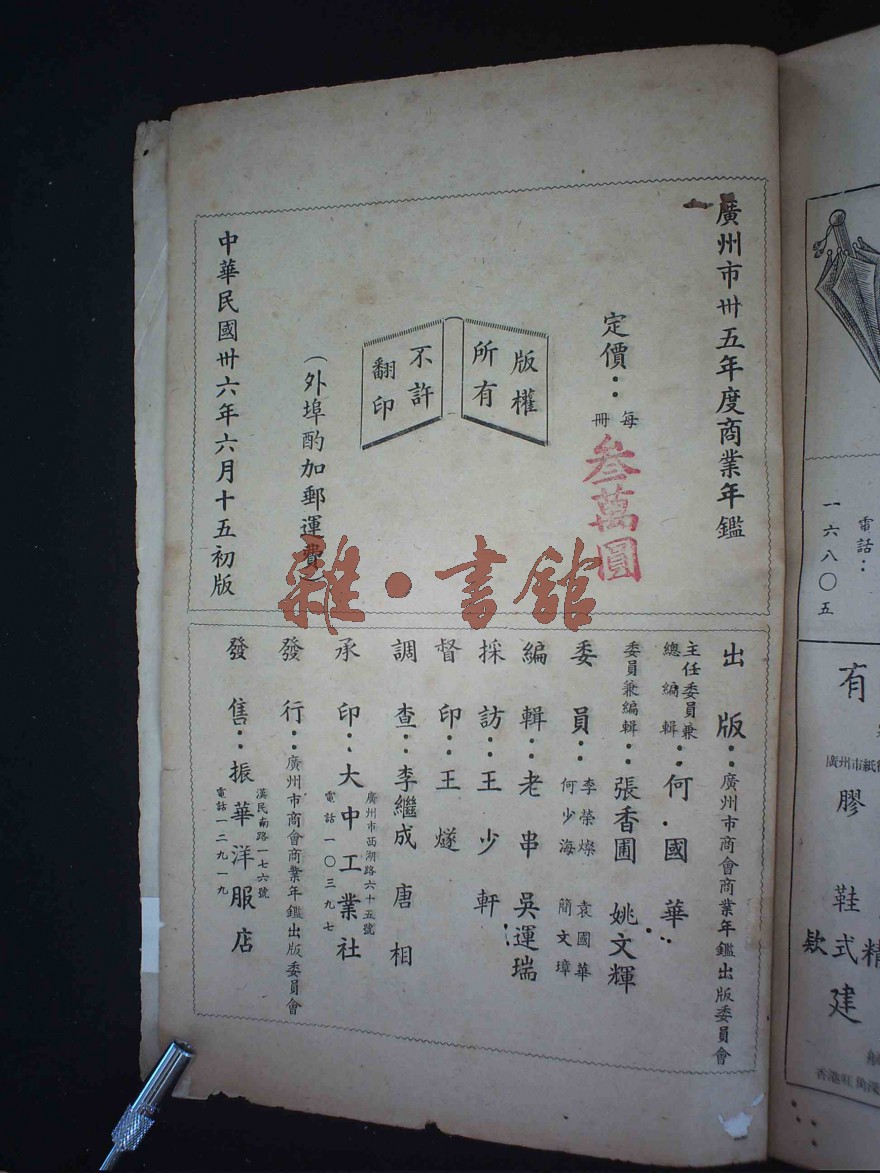 廣州市卅五年度商業年鑑
定價：每冊
叁萬圓
版權
所有
不許
翻印
（外埠酌加郵運費）
中華民國卅六年六月十五初版
出版：廣州市商會商業年鑑出版委員會
主任委員兼
總編輯：何國華
委員兼編輯：張香圃 姚文輝
委員：李榮燦 袁國華
何少海 簡文璋
編輯：老串 吳運瑞
採訪：王少軒
督印：王燧
調查：李繼成 唐相
承印：大中工業社
廣州市西湖路六十五號
電話一〇三九七
發行：廣州市商會商業年鑑出版委員會
發售：振華洋服店
漢民南路一七六號
電話一二九一九
雜·書館
電話：
一六八〇五
有
廣州市紙
膠鞋式
精
建
欵
香港旺角